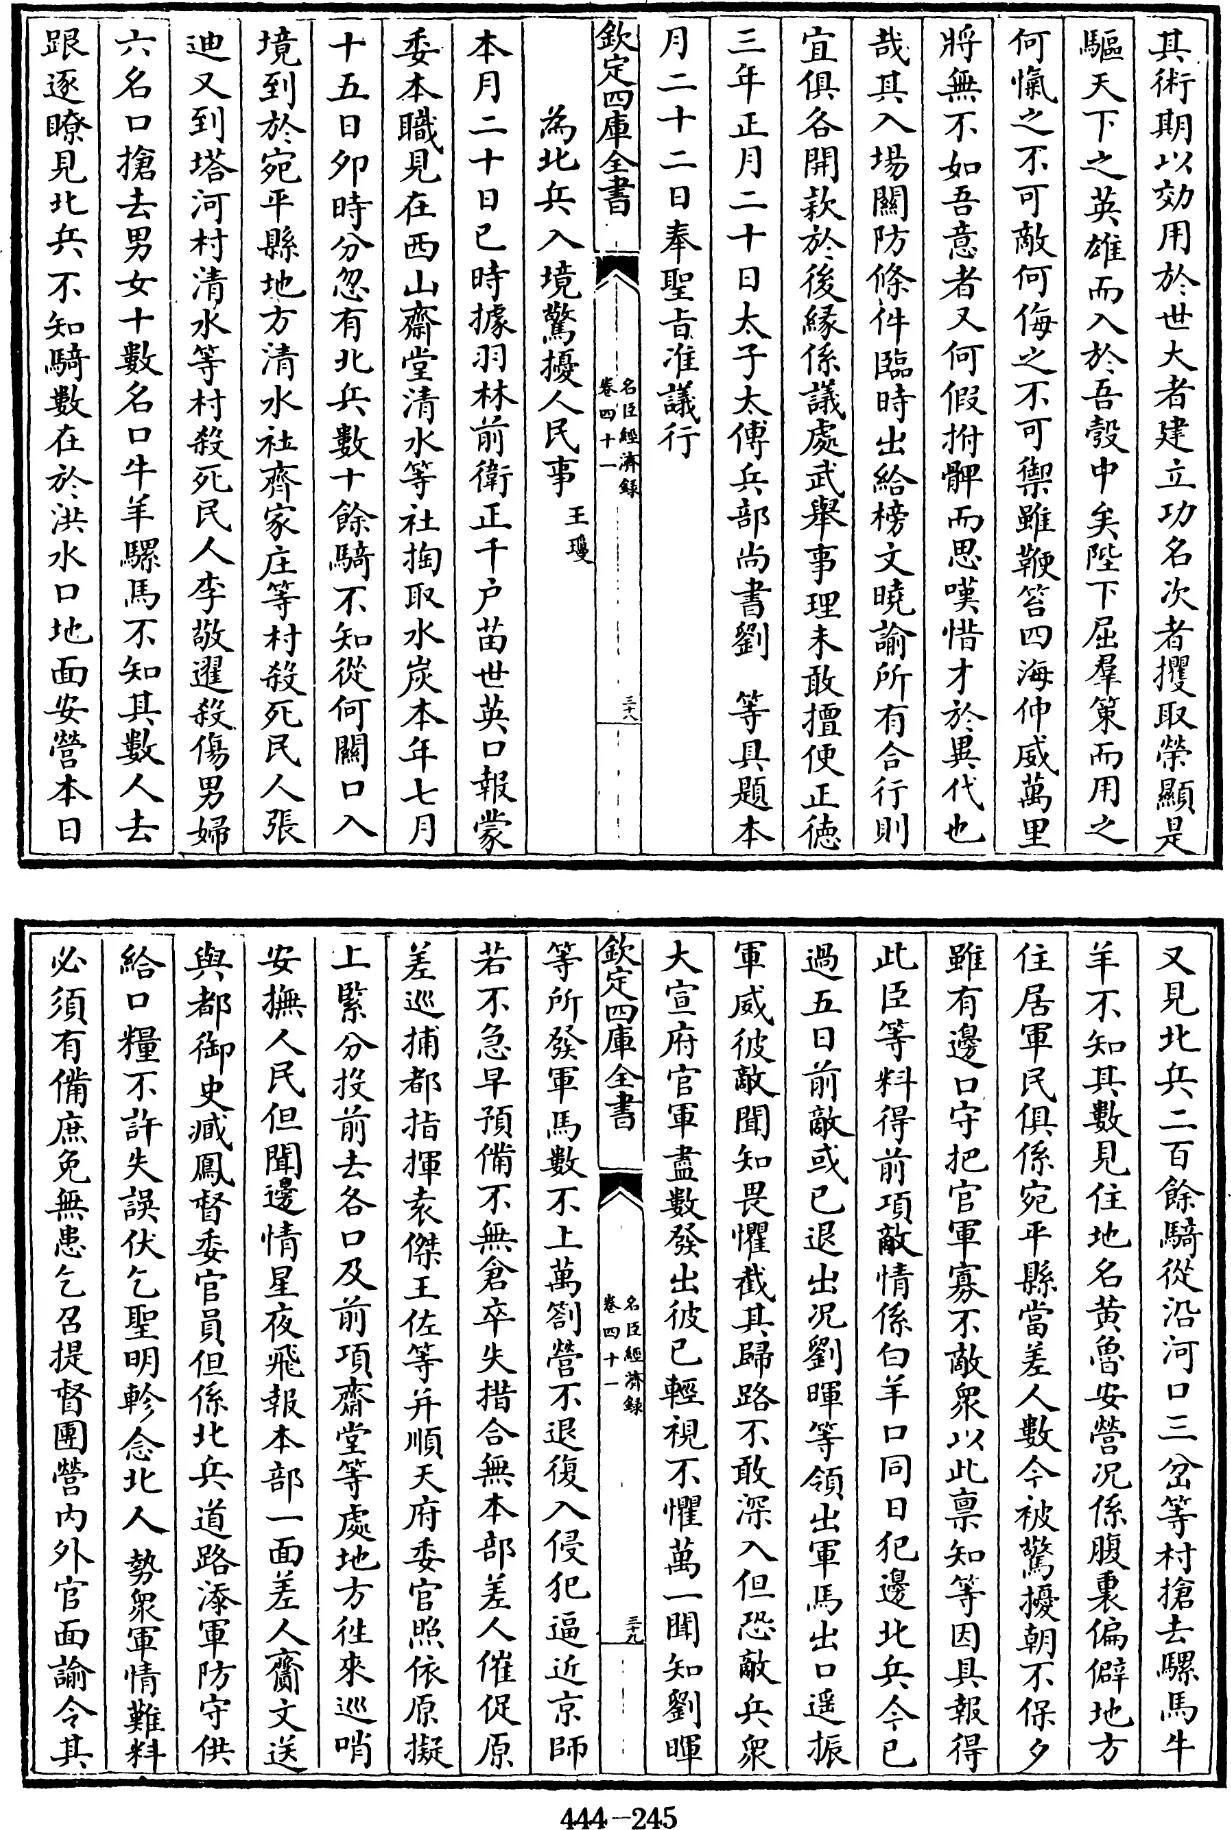 其術期以効用於世大者建立功名次者攫取榮顯是
驅天下之英雄而入於吾彀中矣陛下屈羣策而用之
何愾之不可敵何侮之不可禦雖鞭笞四海伸威萬里
將無不如吾意者又何假拊髀而思嘆惜才於異代也
哉其入場關防條件臨時出給榜文曉諭所有合行則
宜俱各開款於後緣係議處武舉事理未敢擅便正德
三年正月二十日太子太傅兵部尚書劉 等具題本
月二十二日奉聖旨准議行
欽定四庫全書
名臣經濟錄
卷四十一
三十八
為北兵入境驚擾人民事 王瓊
本月二十日巳時據羽林前衛正千户苗世英口報蒙
委本職見在西山齋堂清水等社掏取水炭本年七月
十五日夘時分忽有北兵數十餘騎不知從何關口入
境到於宛平縣地方清水社齊家庄等村殺死民人張
迪又到塔河村清水等村殺死民人李敬遲殺傷男婦
六名口搶去男女十數名口牛羊騾馬不知其數人去
跟逐瞭見北兵不知騎數在於洪水口地面安營本日
又見北兵二百餘騎從沿河口三岔等村搶去騾馬牛
羊不知其數見住地名黄魯安營况係腹裏偏僻地方
住居軍民俱係宛平縣當差人數今被驚擾朝不保夕
雖有邊口守把官軍寡不敵衆以此禀知等因具報得
此臣等料得前項敵情係白羊口同日犯邊北兵今已
過五日前敵或已退出况劉暉等領出軍馬出口遥振
軍威彼敵聞知畏懼截其歸路不敢深入但恐敵兵衆
大宣府官軍盡數發出彼已輕視不懼萬一聞知劉暉
欽定四庫全書
名臣經濟錄
卷四十一
三十九
等所發軍馬數不上萬劄營不退復入侵犯逼近京師
若不急早預備不無倉卒失措合無本部差人催促原
差巡捕都指揮袁傑王佐等并順天府委官照依原擬
上緊分投前去各口及前項齋堂等處地方徃來巡哨
安撫人民但聞邊情星夜飛報本部一面差人齎文送
與都御史臧鳳督委官員但係北兵道路添軍防守供
給口糧不許失誤伏乞聖明軫念北人 勢衆軍情難料
必須有備庶免無患乞召提督團營内外官面諭令其
444-245